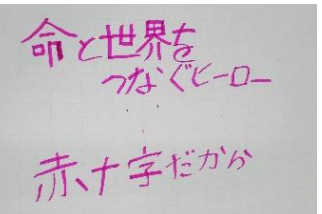 命と世界を
つなぐヒーロー
赤十字だから